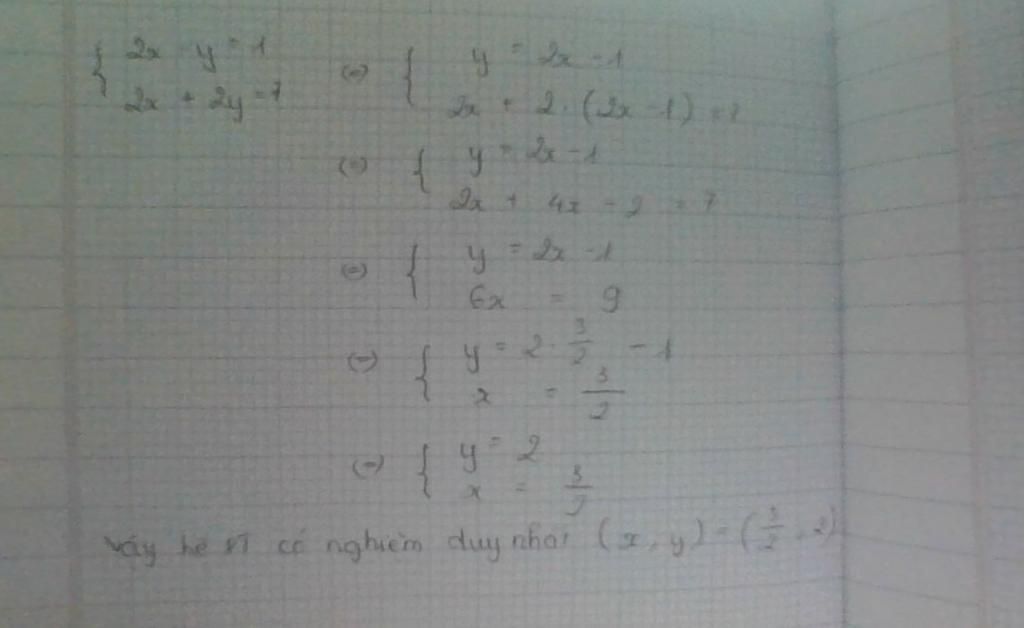 { 2x - y = 1 (=) { y = 2x - 1
2x + 2y = 7 2x + 2 . (2x - 1) = 7
(=) { y = 2x - 1
2x + 4x - 2 = 7
(=) { y = 2x - 1
6x = 9
(=) { y = 2 . 3/2 - 1
x = 3/2
(=) { y = 2
x = 3/2
Vậy hệ PT có nghiệm duy nhất (x, y) = (3/2, 2)